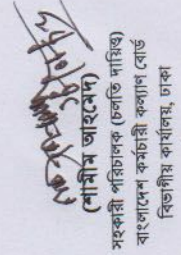 (শামীম আহমেদ)
সহকারী পরিচালক (চলতি দায়িত্ব)
বাংলাদেশ কর্মচারী কল্যাণ বোর্ড
বিভাগীয় কার্যালয়, ঢাকা